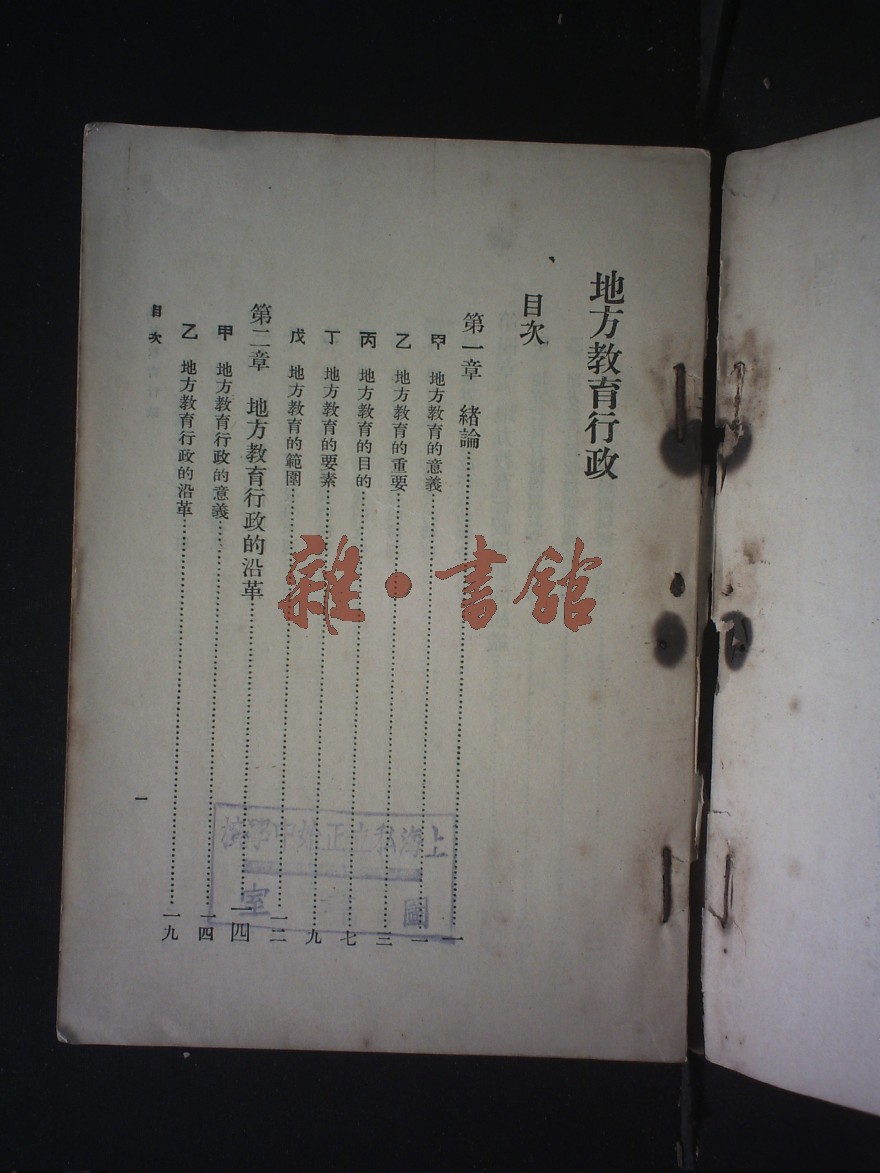 地方教育行政
目次
第一章 緒論……一
甲 地方教育的意義……一
乙 地方教育的重要……三
丙 地方教育的目的……七
丁 地方教育的要素……九
戊 地方教育的範圍……一二
第二章 地方教育行政的沿革……一四
甲 地方教育行政的意義……一四
乙 地方教育行政的沿革……一九
目次
一
雜·書館
上海私立正始中學校
圖 室